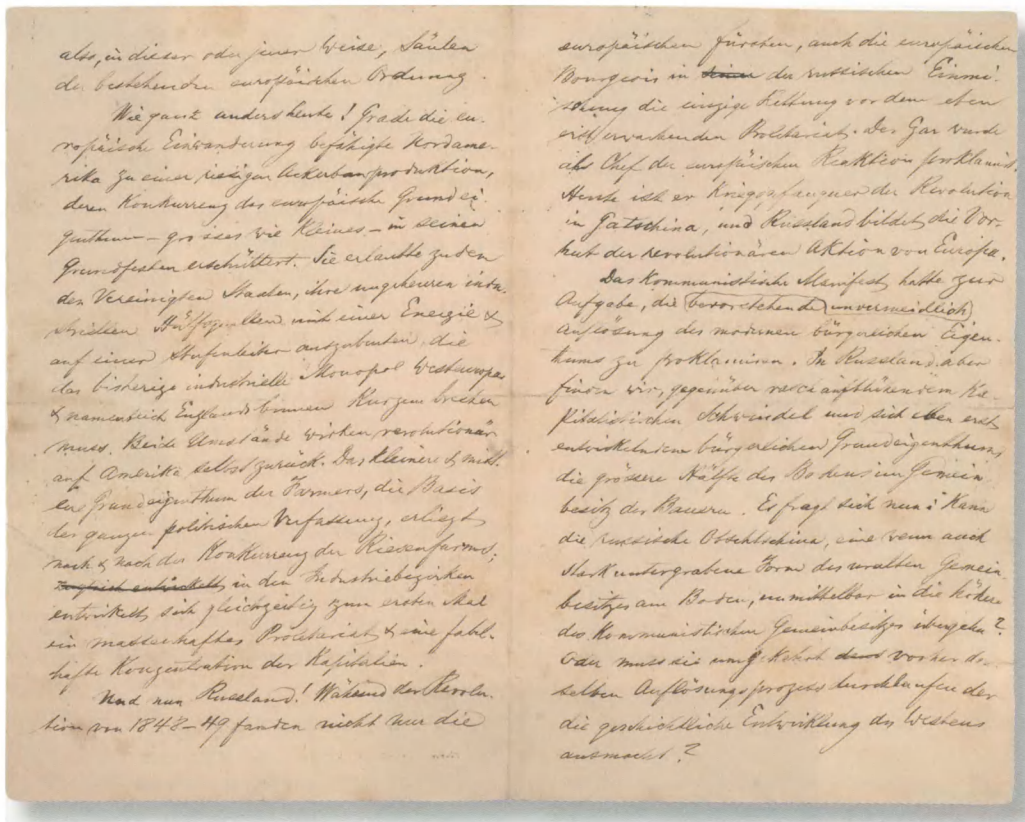 also, in dieser oder jener Weise, Säulen
der bestehenden europäischen Ordnung.
Wie ganz anders heute! Grade die eu-
ropäische Einwanderung befähigte Nordame-
rika zu einer riesigen Ackerbauproduktion,
deren Konkurrenz das europäische Grundei-
genthum – grosses wie kleines – in seinen
Grundfesten erschüttert. Sie erlaubte zudem
den Vereinigten Staaten, ihre ungeheuren indu-
striellen Hülfsquellen mit einer Energie &
auf einer Stufenleiter auszubeuten, die
das bisherige industrielle Monopol Westeuropas
& namentlich Englands binnen Kurzem brechen
muss. Beide Umstände wirken revolutionär
auf Amerika selbst zurück. Das kleinere & mittl-
ere Grundeigenthum der Farmers, die Basis
der ganzen politischen Verfassung, erliegt
nach & nach der Konkurrenz der Riesenfarms;
zugleich entwickelt in den Industriebezirken
entwickelt sich gleichzeitig zum ersten Mal
ein massenhaftes Proletariat & eine fabel-
hafte Konzentration der Kapitalien.
Und nun Russland! Während der Revolu-
tion von 1848–49 fanden nicht nur die
europäischen Fürsten, auch die europäischen
Bourgeois in der russischen Einmi-
schung die einzige Rettung vor dem eben
erst erwachenden Proletariat. Der Zar wurde
als Chef der europäischen Reaktion proklamirt.
Heute ist er Kriegsgefangner der Revolution
in Gatschina, und Russland bildet die Vor-
hut der revolutionären Aktion von Europa.
Das Kommunistische Manifest hatte zur
Aufgabe, die bevorstehende unvermeidlich
Auflösung des modernen bürgerlichen Eigen-
thums zu proklamiren. In Russland aber
finden wir, gegenüber rasch aufblühendem ka-
pitalistischen Schwindel und sich eben erst
entwickelndem bürgerlichen Grundeigenthum,
die grössere Hälfte des Bodens im Gemein-
besitz der Bauern. Es fragt sich nun: Kann
die russische Obschtschina, eine wenn auch
stark untergrabene Form des uralten Gemein-
besitzes am Boden, unmittelbar in die höhere
des kommunistischen Gemeinbesitzes übergehn?
Oder muss sie umgekehrt vorher den-
selben Auflösungsprozess durchlaufen der
die geschichtliche Entwicklung des Westens
ausmacht?